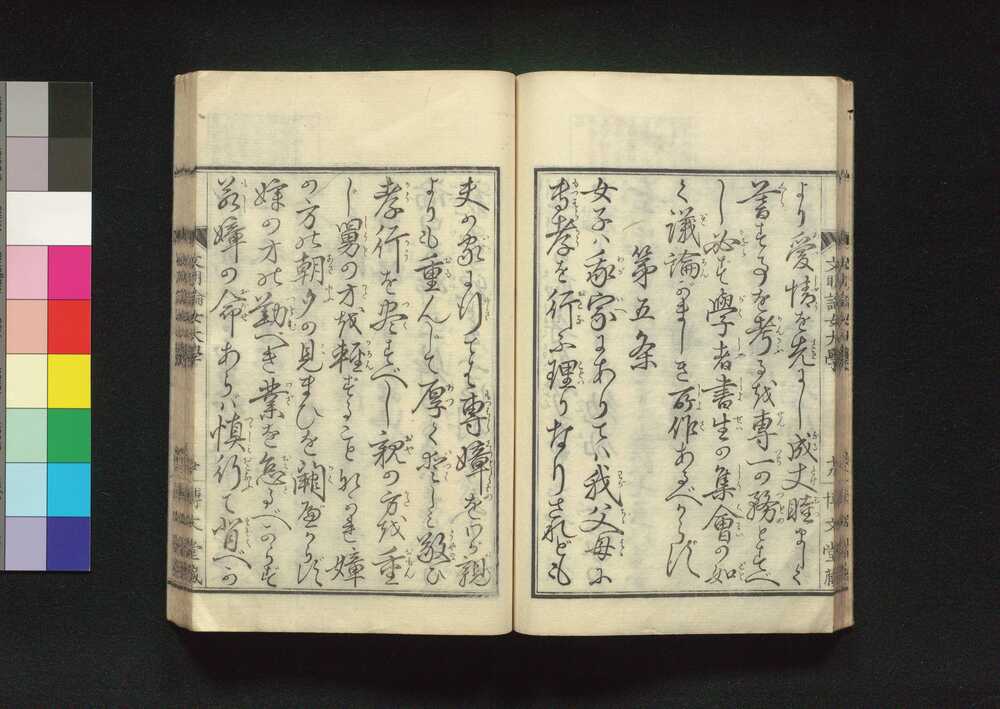 より愛情を先にし成丈睦ましく
暮すことを考るを専一の務とすべ
し必ず學者書生の集會の如
く議論がましき所作あるべからず
第五条
女子ハ我家にありてハ我父母に
専孝を行ふ理りなりされども
夫の家に行ては専嫜を我親
よりも重んじて厚く愛しミ敬ひ
孝行を尽すべし親の方を重
じ舅の方を軽ずること勿れ嫜
の方の朝夕の見まひを闕べからず
嫜の方の勤べき業を怠るべからず
若嫜の命あらバ慎行て背べか
文明論女大學
十八
博文堂藏
文明論女大學
博文堂藏